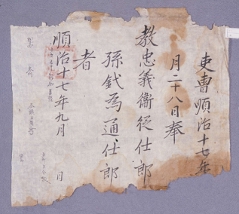 吏曹順治十七年
月二十八日奉
教忠義衛從仕郎
孫鉞為通仕郎
者
順治十七年九月 日